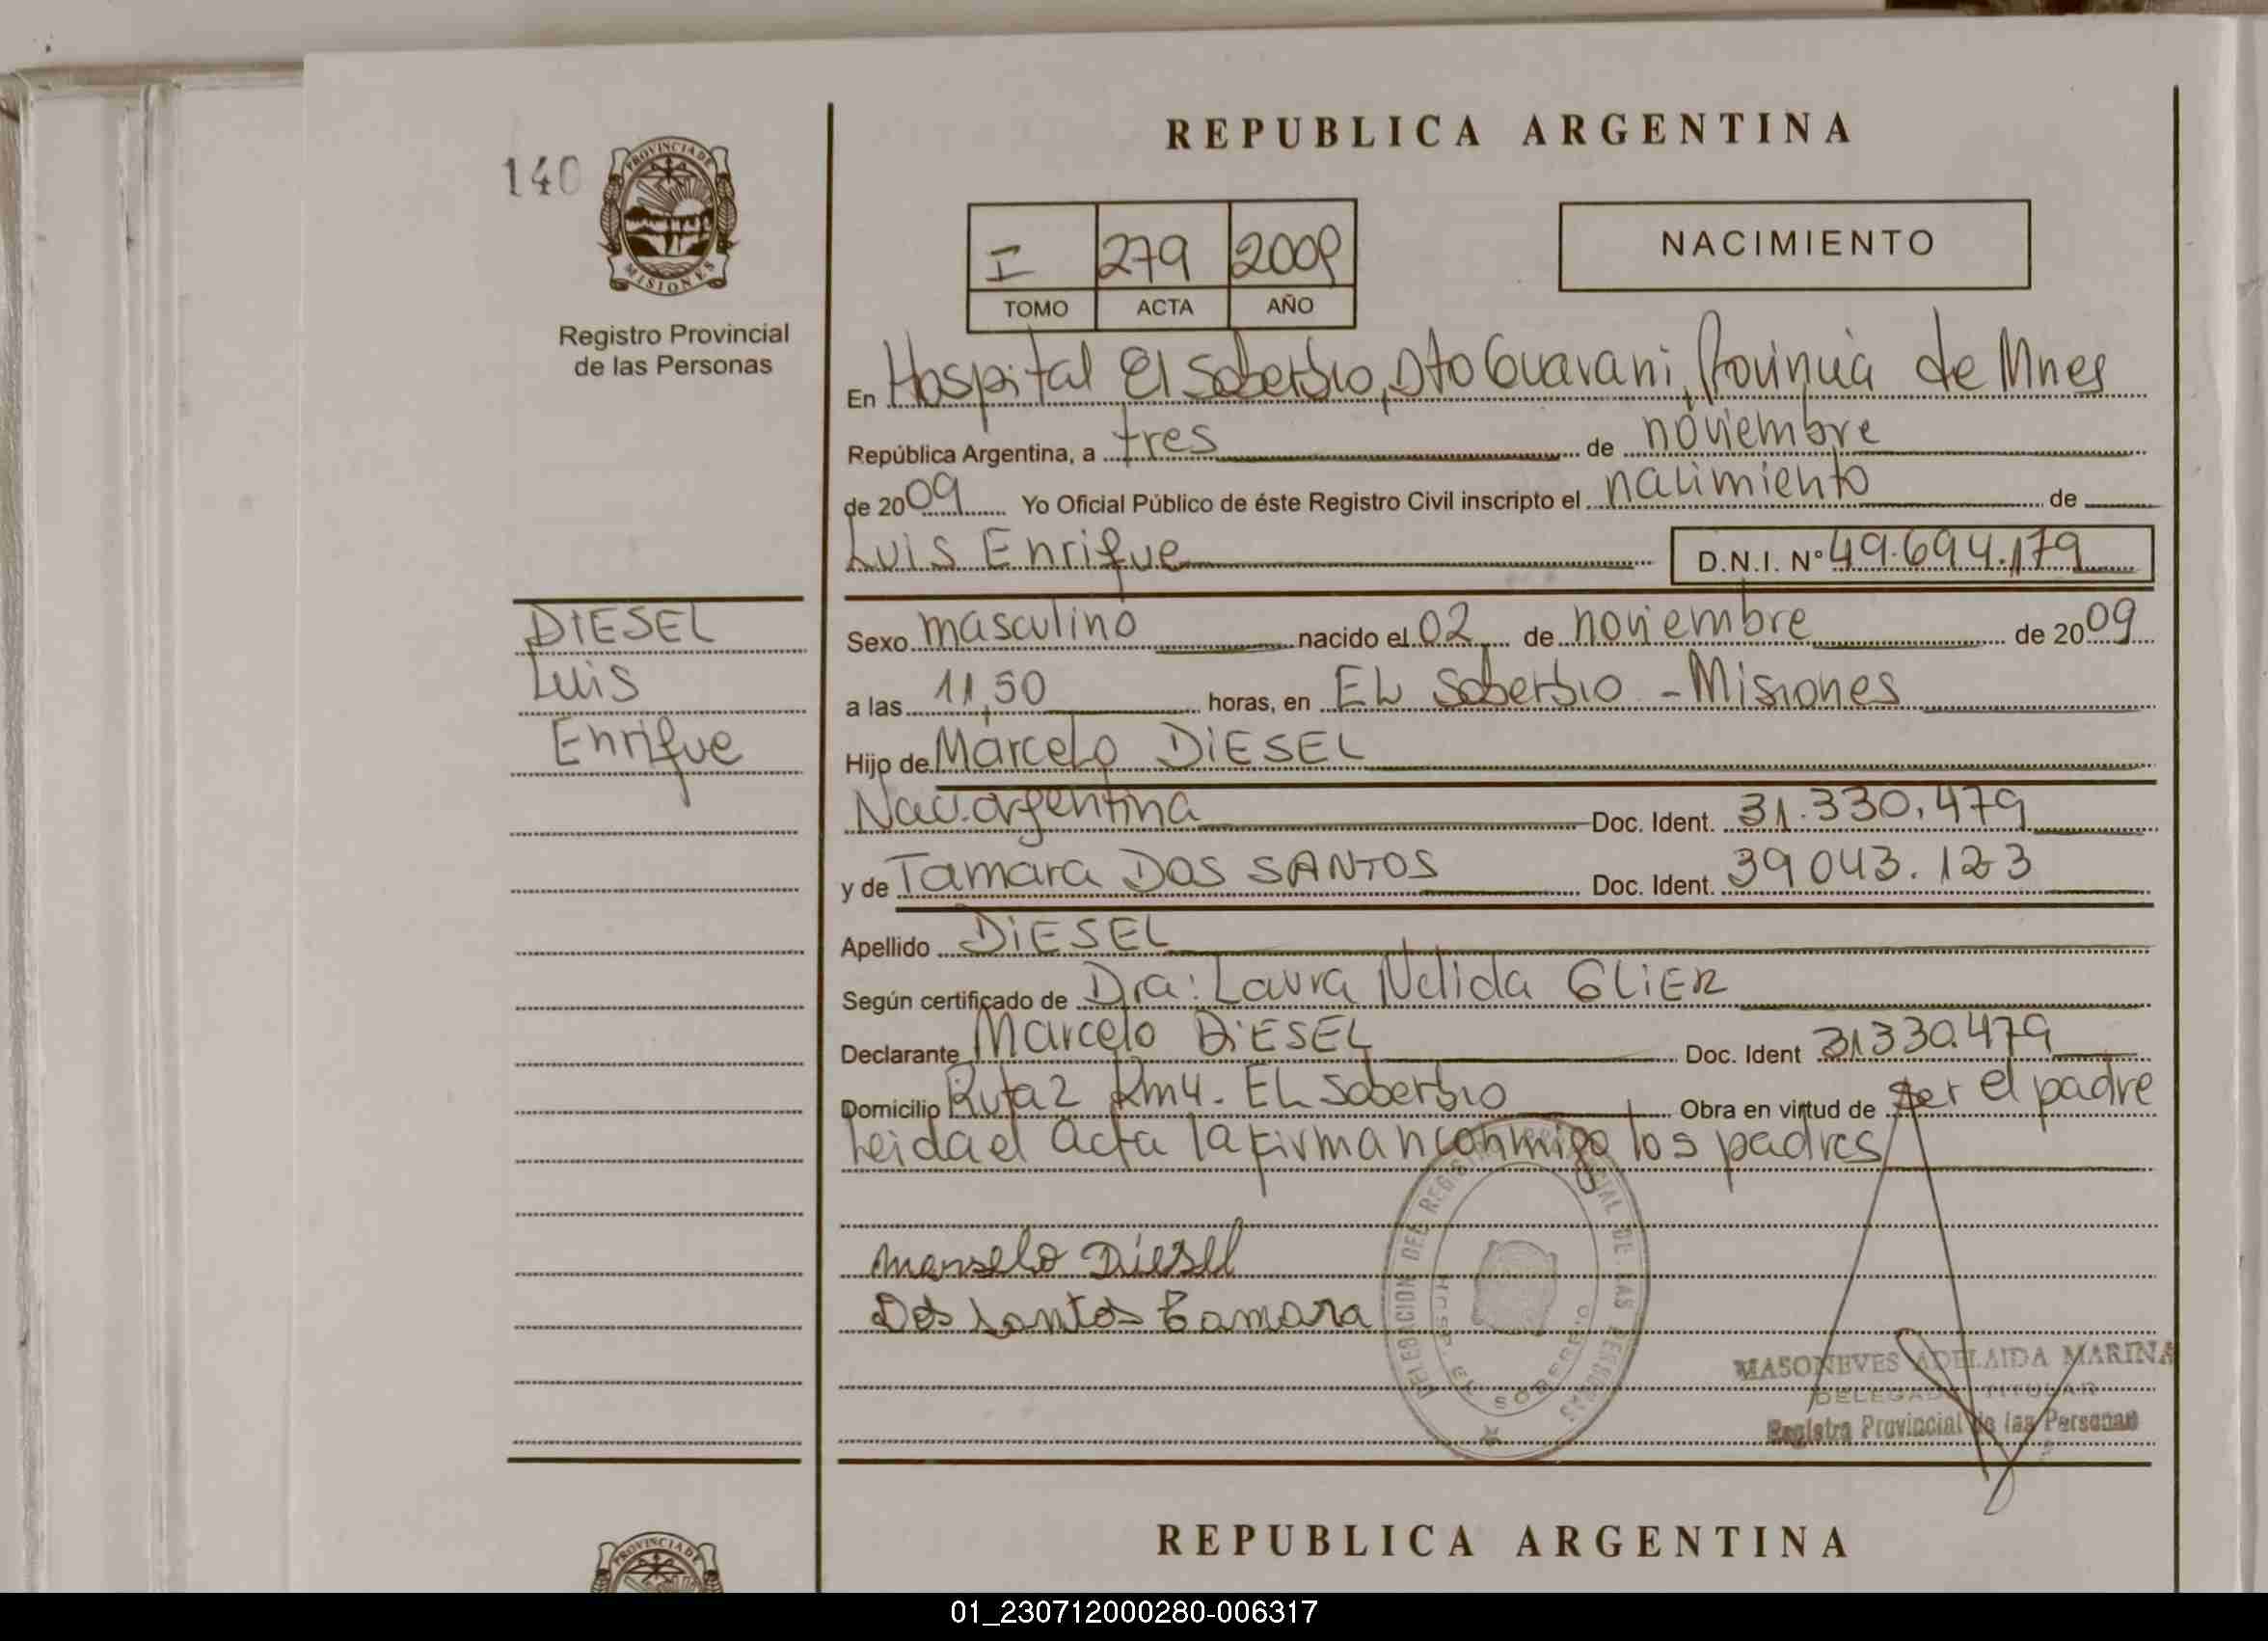 140
PROVINCIA DE
MISIONES
Registro Provincial
de las Personas
REPUBLICA ARGENTINA
I 279 2009
TOMO ACTA AÑO
NACIMIENTO
En Hospital El Soberbio, Dto Guarani, Provincia de Mnes
República Argentina, a tres de noviembre
de 2009 Yo Oficial Público de éste Registro Civil inscripto el nacimiento de
Luis Enrique D.N.I. Nº 49.694.179
DIESEL
Luis
Enrique
Sexo masculino nacido el 02 de noviembre de 2009
a las 11,50 horas, en EL Soberbio - Misiones
Hijo de Marcelo DIESEL
Nac. argentina Doc. Ident. 31.330.479
y de Tamara DOS SANTOS Doc. Ident. 39043.123
Apellido DIESEL
Según certificado de Dra: Laura Nelida GLIER
Declarante Marcelo DIESEL Doc. Ident 31330.479
Domicilio Ruta 2 Km4. EL Soberbio Obra en virtud de ser el padre
Leida el acta la firman conmigo los padres
Marselo Diesel
Dos Santos Tamara
DELEGACION DEL REGISTRO PROVINCIAL DE LAS PERSONAS
HOSP. EL SOBERBIO
MASONEVES ADELAIDA MARINA
DELEGADA TITULAR
Registro Provincial de las Personas
REPUBLICA ARGENTINA
PROVINCIA DE
01_230712000280-006317